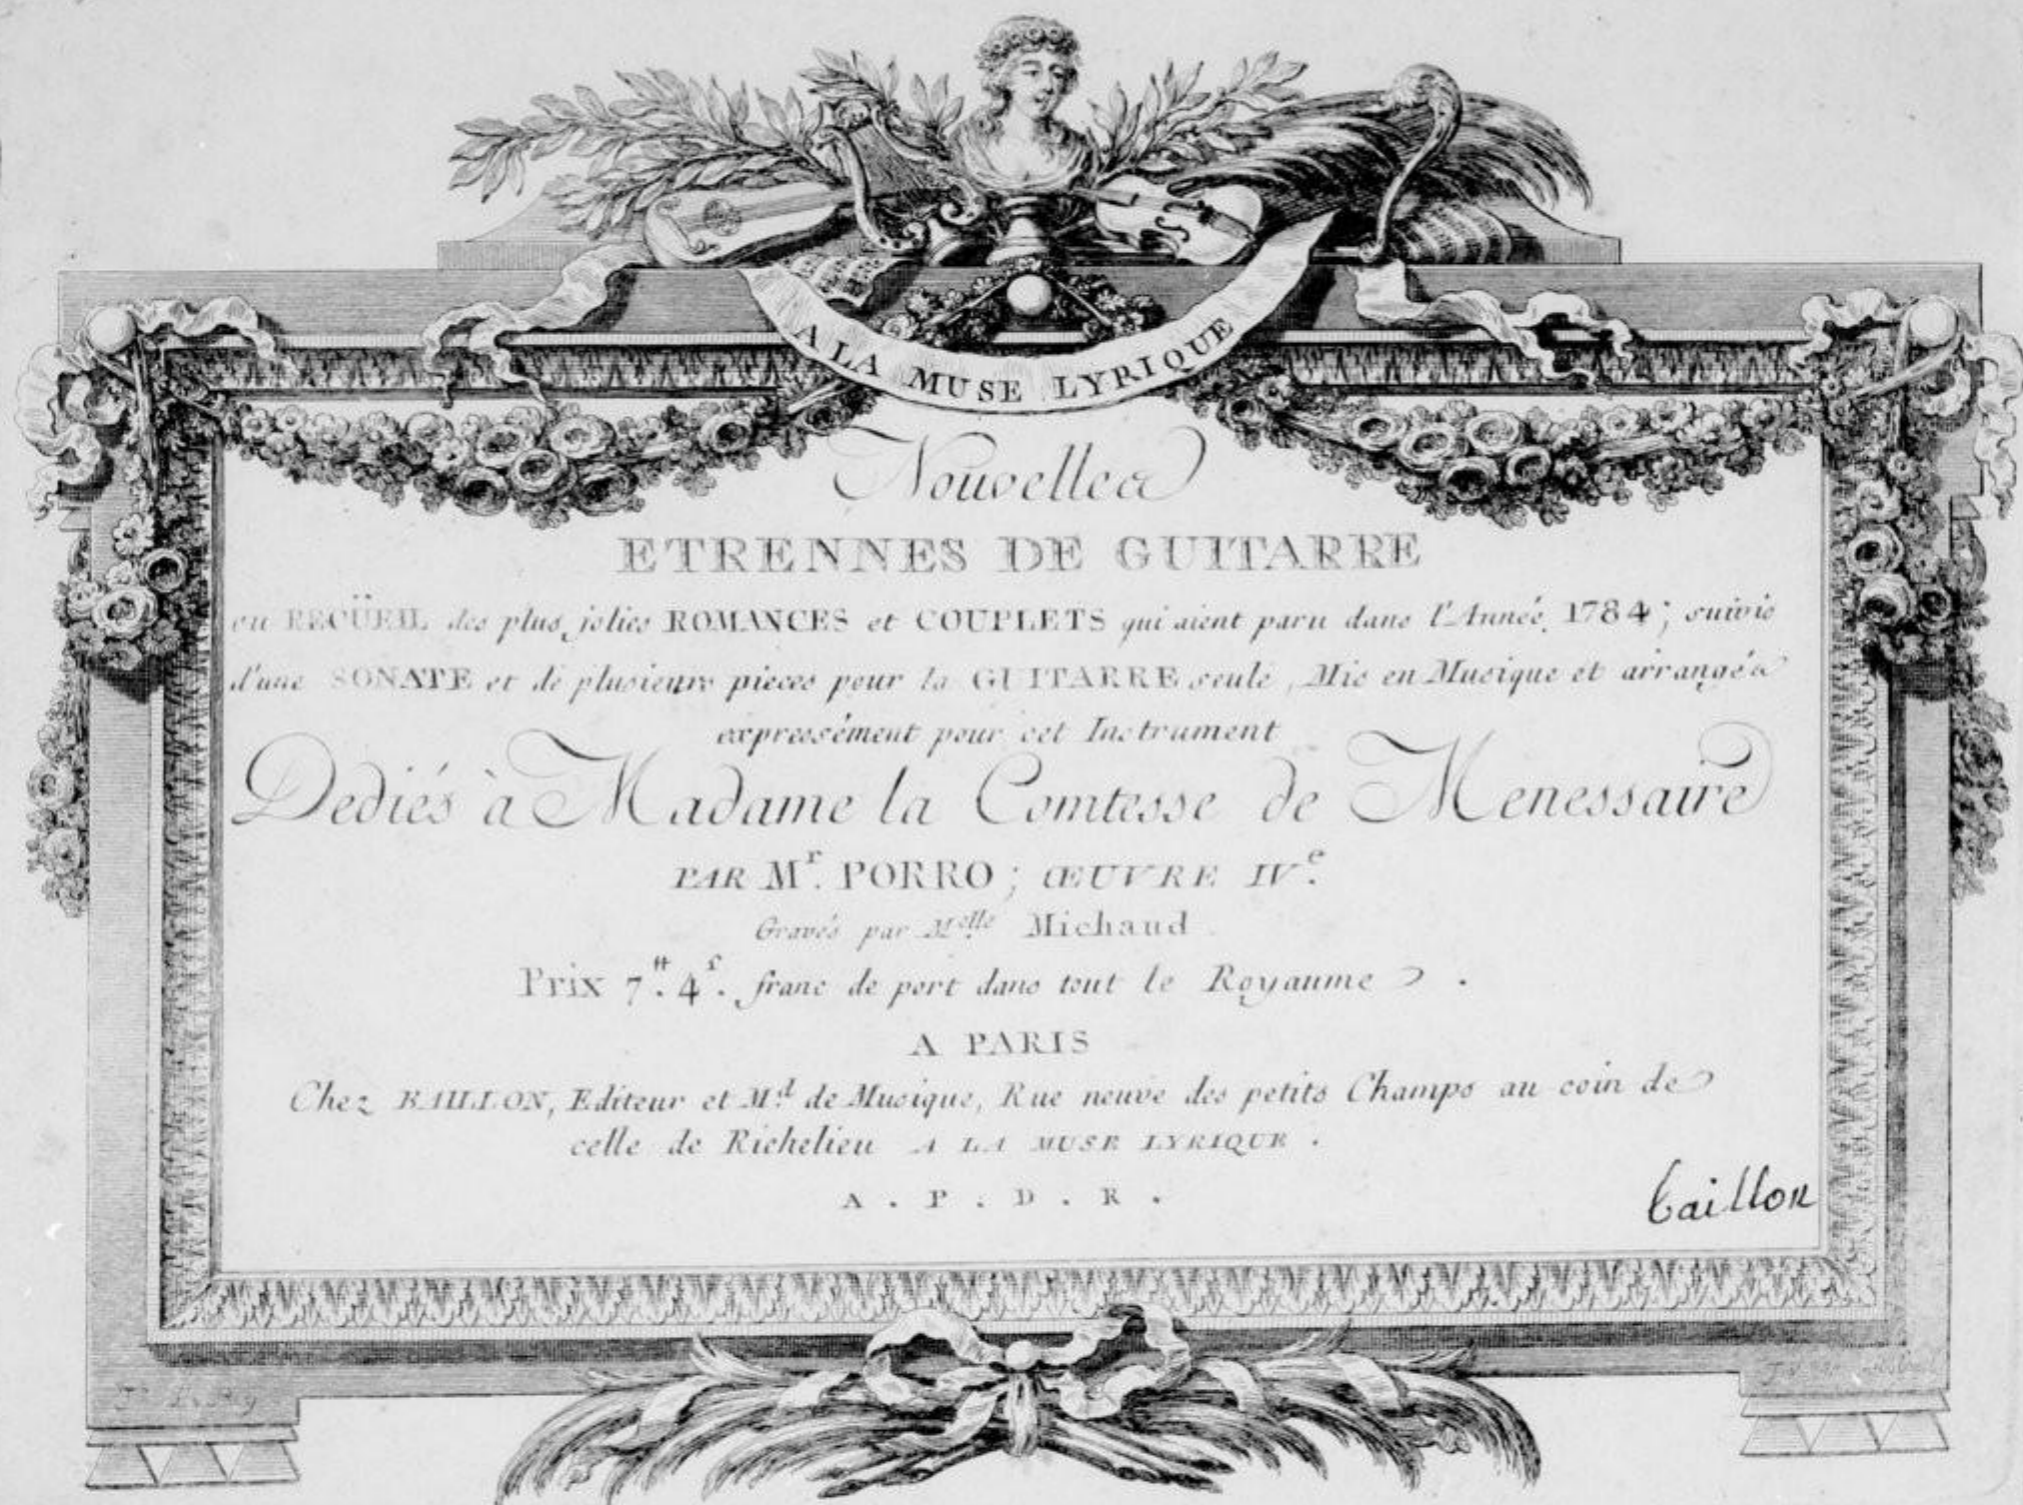 A LA MUSE LYRIQUE
Nouvelles
ETRENNES DE GUITARRE
ou RECÜEIL des plus jolies ROMANCES et COUPLETS qui aient paru dans l'Année 1784; suivis
d'une SONATE et de plusieurs pieces pour la GUITARRE seule, Mis en Musique et arrangés
expressément pour cet Instrument
Dediés à Madame la Comtesse de Menessaire
PAR Mr. PORRO; ŒUVRE IVe.
Gravés par Melle Michaud
Prix 7tt. 4s. franc de port dans tout le Royaume.
A PARIS
Chez BAILLON, Editeur et Md. de Musique, Rue neuve des petits Champs au coin de
celle de Richelieu A LA MUSE LYRIQUE.
A. P. D. R.
baillon